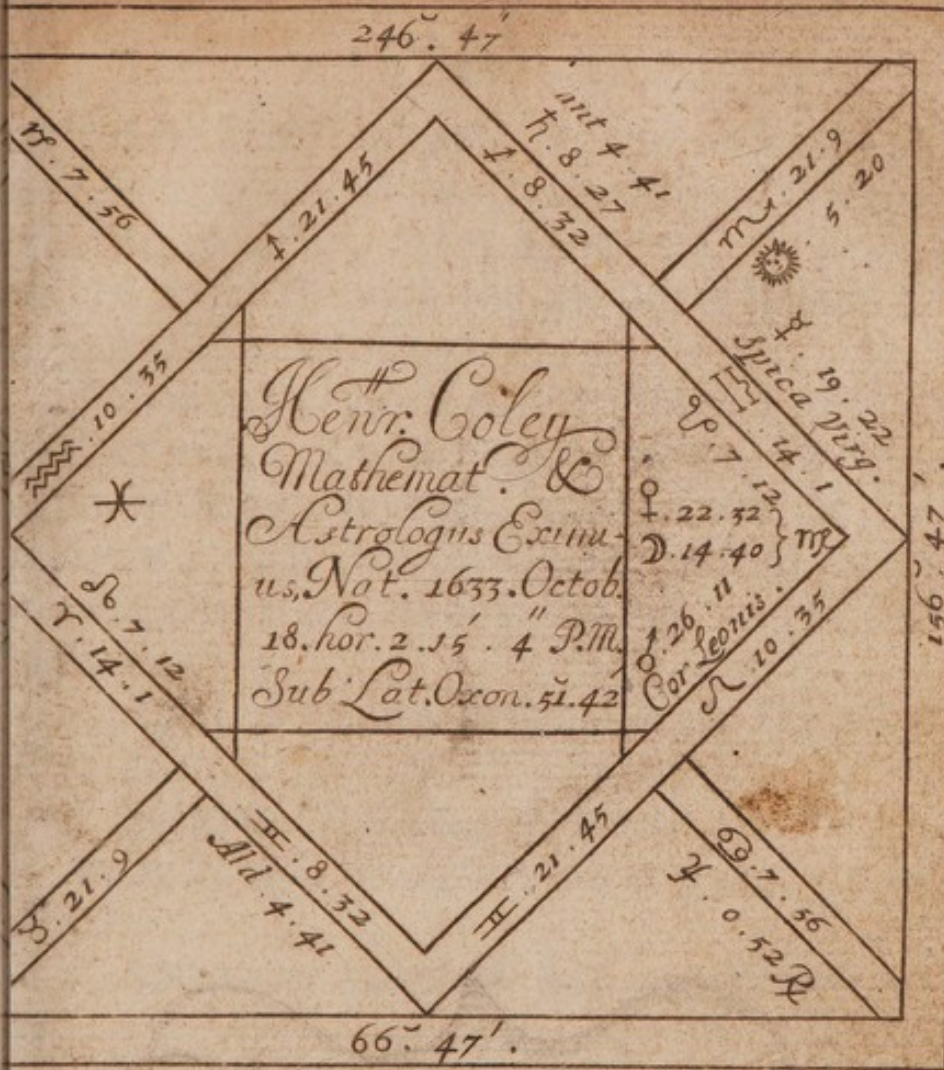 246. 47'
♑. 7. 56
♐. 21. 45
ant 4. 41
♄. 8. 27
♐. 8. 32
♏. 21. 9
☉. 5. 20
☿. 19. 22
Spica Virg.
♎. 14. 1
♒. 10. 35
♓
Henr. Coley
Mathemat. &
Astrologus Eximi-
us, Nat. 1633. Octob.
18. hor. 2. 15'. 4" P.M.
Sub Lat. Oxon. 51. 42'
☋. 7. 12
♀. 22. 32
☽. 14. 40 } ♍
♂. 26. 11
Cor Leonis.
♌. 10. 35
156. 47'
☊. 7. 12
♈. 14. 1
♉. 21. 9
♊. 8. 32
Ald. 4. 41
♊. 21. 45
♋. 7. 56
♃. 0. 52 ℞
66. 47'.